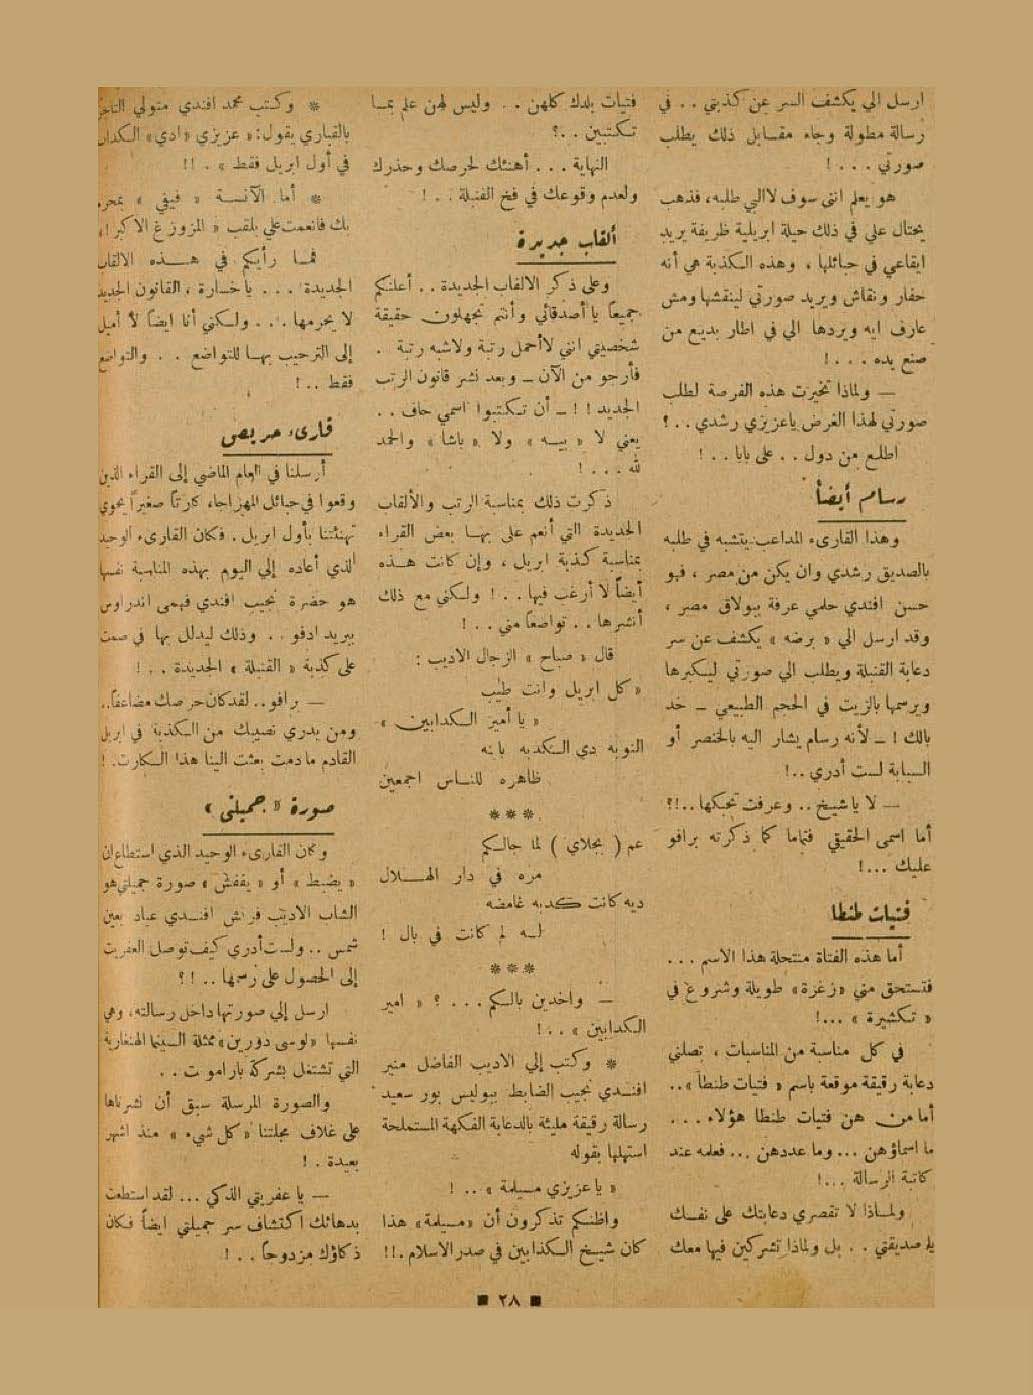 ارسل الي يكشف السر عن كذبتي . . في
رسالة مطولة وجاء مقابل ذلك يطلب
صورتي . . . !
هو يعلم انني سوف لا البي طلبه، فذهب
يحتال علي في ذلك حيلة ابريلية ظريفة يريد
ايقاعي في حبائلها ، وهذه الكذبة هي أنه
حفار ونقاش ويريد صورتي لينقشها ومش
عارف ايه ويردها الي في اطار بديع من
صنع يده . . . !
— ولماذا تخيرت هذه الفرصة لطلب
صورتي لهذا الغرض ياعزيزي رشدي . . ؟
اطلع من دول . . على بابا . . !
رسام أيضاً
وهذا القارىء المداعب يتشبه في طلبه
بالصديق رشدي وان يكن من مصر ، فهو
حسن افندي حلمي عرفة ببولاق مصر ،
وقد ارسل الي « برضه » يكشف عن سر
دعابة القنبلة ويطلب الي صورتي ليكبرها
ويرسمها بالزيت في الحجم الطبيعي — خد
بالك ! — لأنه رسام يشار اليه بالخنصر أو
السبابة لست أدري . . !
— لا ياشيخ . . وعرفت تحبكها . . !؟
أما اسمى الحقيقي فتماما كما ذكرته برافو
عليك . . . !
فتيات طنطا
أما هذه الفتاة منتحلة هذا الاسم . . .
فتستحق مني « زغرة » طويلة وشروع في
« تكشيرة » . . . !
في كل مناسبة من المناسبات ، تصلني
دعابة رقيقة موقعة باسم « فتيات طنطا » . .
أما من هن فتيات طنطا هؤلاء . . .
ما اسماؤهن . . . وما عددهن . . . فعلمه عند
كاتبة الرسالة . . . !
ولماذا لا تقصري دعابتك على نفسك
يا صديقتي . . بل ولماذا تشركين فيها معك
فتيات بلدك كلهن . . وليس لهن علم بما
تكتبين . . ؟
النهاية . . . أهنئك لحرصك وحذرك
ولعدم وقوعك في فخ القنبلة . . !
ألقاب جديدة
وعلى ذكر الالقاب الجديدة . . أعلنكم
جميعاً يا أصدقائي وأنتم تجهلون حقيقة
شخصيتي انني لا أحمل رتبة ولاشبه رتبة .
فأرجو من الآن — وبعد نشر قانون الرتب
الجديد ! ! — أن تكتبوا اسمي حاف . .
يعني لا « بيه » ولا « باشا » والحمد
لله . . . !
ذكرت ذلك بمناسبة الرتب والألقاب
الجديدة التي أنعم على بها بعض القراء
بمناسبة كذبة ابريل ، وإن كانت هذه
أيضاً لا أرغب فيها . . ! ولكني مع ذلك
أنشرها . . تواضعاً مني . . !
قال « صباح » الزجال الاديب :
« كل ابريل وانت طيب
« يا أمير الكدابين »
النوبه دي الكدبه باينه
ظاهره للناس اجمعين
***
عم ( بجلاي ) لما جالكم
مره في دار الهلال
ديه كانت كدبه غامضه
لسه لم كانت في بال !
***
— واخدين بالكم . . . ؟ « امير
الكدابين » . . !
* وكتب إلي الاديب الفاضل منير
افندي نجيب الضابط ببوليس بور سعيد
رسالة رقيقة مليئة بالدعابة الفكهة المستملحة
استهلها بقوله
« ياعزيزي مسيلمة » . . !
واظنكم تذكرون أن « مسيلمة » هذا
كان شيخ الكذابين في صدر الاسلام . !!
* وكتب محمد افندي متولي التاجر
بالقباري يقول : « عزيزي « ادي » الكداب
في أول ابريل فقط » . !!
* أما الآنسة « فيفي » بمحرم
بك فانعمت علي بلقب « المزوزغ الاكبر ! »
فما رأيكم في هذه الالقاب
الجديدة . . . ياخسارة ، القانون الجديد
لا يحرمها . . . ولكني أنا ايضاً لا أميل
إلى الترحيب بها للتواضع . . والتواضع
فقط . . !
قارىء حريص
أرسلنا في العام الماضي إلى القراء الذين
وقعوا في حبائل المهزاجاء كارتاً صغيراً يحوي
تهنئتنا بأول ابريل . فكان القارىء الوحيد
الذي أعاده إلي اليوم بهذه المناسبة نفسها
هو حضرة نجيب افندي فهمي اندراوس
ببريد ادفو . . وذلك ليدلل بها في صمت
على كذبة « القنبلة » الجديدة . . !
— برافو . . لقد كان حرصك مضاعفاً . .
ومن يدري نصيبك من الكذبة في ابريل
القادم ما دمت بعثت الينا هذا الكارت . !
صورة « جميلتي »
وكان القارىء الوحيد الذي استطاع ان
« يضبط » أو « يقفش » صورة جميلتي هو
الشاب الاديب فرانش افندي عياد بعين
شمس . . ولست أدري كيف توصل العفريت
إلى الحصول على رسمها . . !؟
ارسل إلي صورتها داخل رسالته، وهي
نفسها « لوسى دورين » ممثلة السينما الهنغارية
التي تشتغل بشركة بارامونت . .
والصورة المرسلة سبق أن نشرناها
على غلاف مجلتنا « كل شيء » منذ اشهر
بعيدة . !
— يا عفريتي الذكي . . . لقد استطعت
بدهائك اكتشاف سر جميلتي ايضاً فكان
ذكاؤك مزدوجاً . . !
٢٨